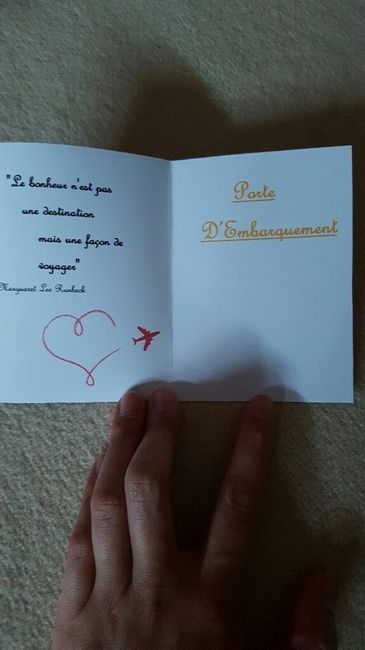 "Le bonheur n'est pas
une destination
mais une façon de
voyager"
Marguaret Lee Runbeck
Porte
D'Embarquement